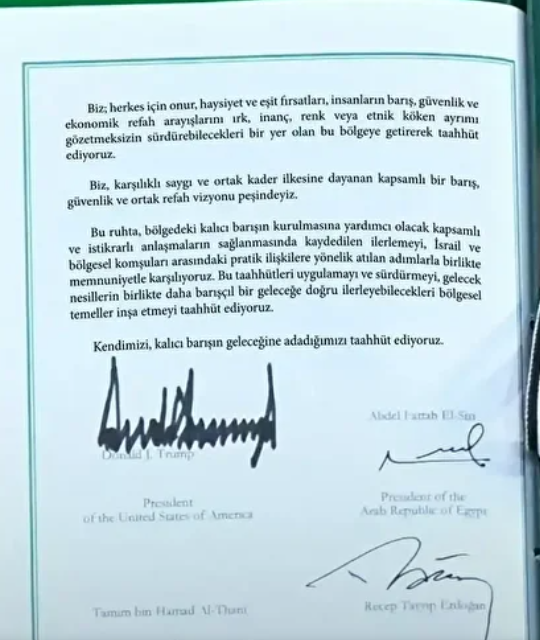 Biz; herkes için onur, haysiyet ve eşit fırsatları, insanların barış, güvenlik ve
ekonomik refah arayışlarını ırk, inanç, renk veya etnik köken ayrımı
gözetmeksizin sürdürebilecekleri bir yer olan bu bölgeye getirerek taahhüt
ediyoruz.
Biz, karşılıklı saygı ve ortak kader ilkesine dayanan kapsamlı bir barış,
güvenlik ve ortak refah vizyonu peşindeyiz.
Bu ruhta, bölgedeki kalıcı barışın kurulmasına yardımcı olacak kapsamlı
ve istikrarlı anlaşmaların sağlanmasında kaydedilen ilerlemeyi, İsrail ve
bölgesel komşuları arasındaki pratik ilişkilere yönelik atılan adımlarla birlikte
memnuniyetle karşılıyoruz. Bu taahhütleri uygulamayı ve sürdürmeyi, gelecek
nesillerin birlikte daha barışçıl bir geleceğe doğru ilerleyebilecekleri bölgesel
temeller inşa etmeyi taahhüt ediyoruz.
Kendimizi, kalıcı barışın geleceğine adadığımızı taahhüt ediyoruz.
Donald J. Trump
President
of the United States of America
Abdel Fattah El-Sisi
President of the
Arab Republic of Egypt
Tamim bin Hamad Al-Thani
Recep Tayyip Erdoğan